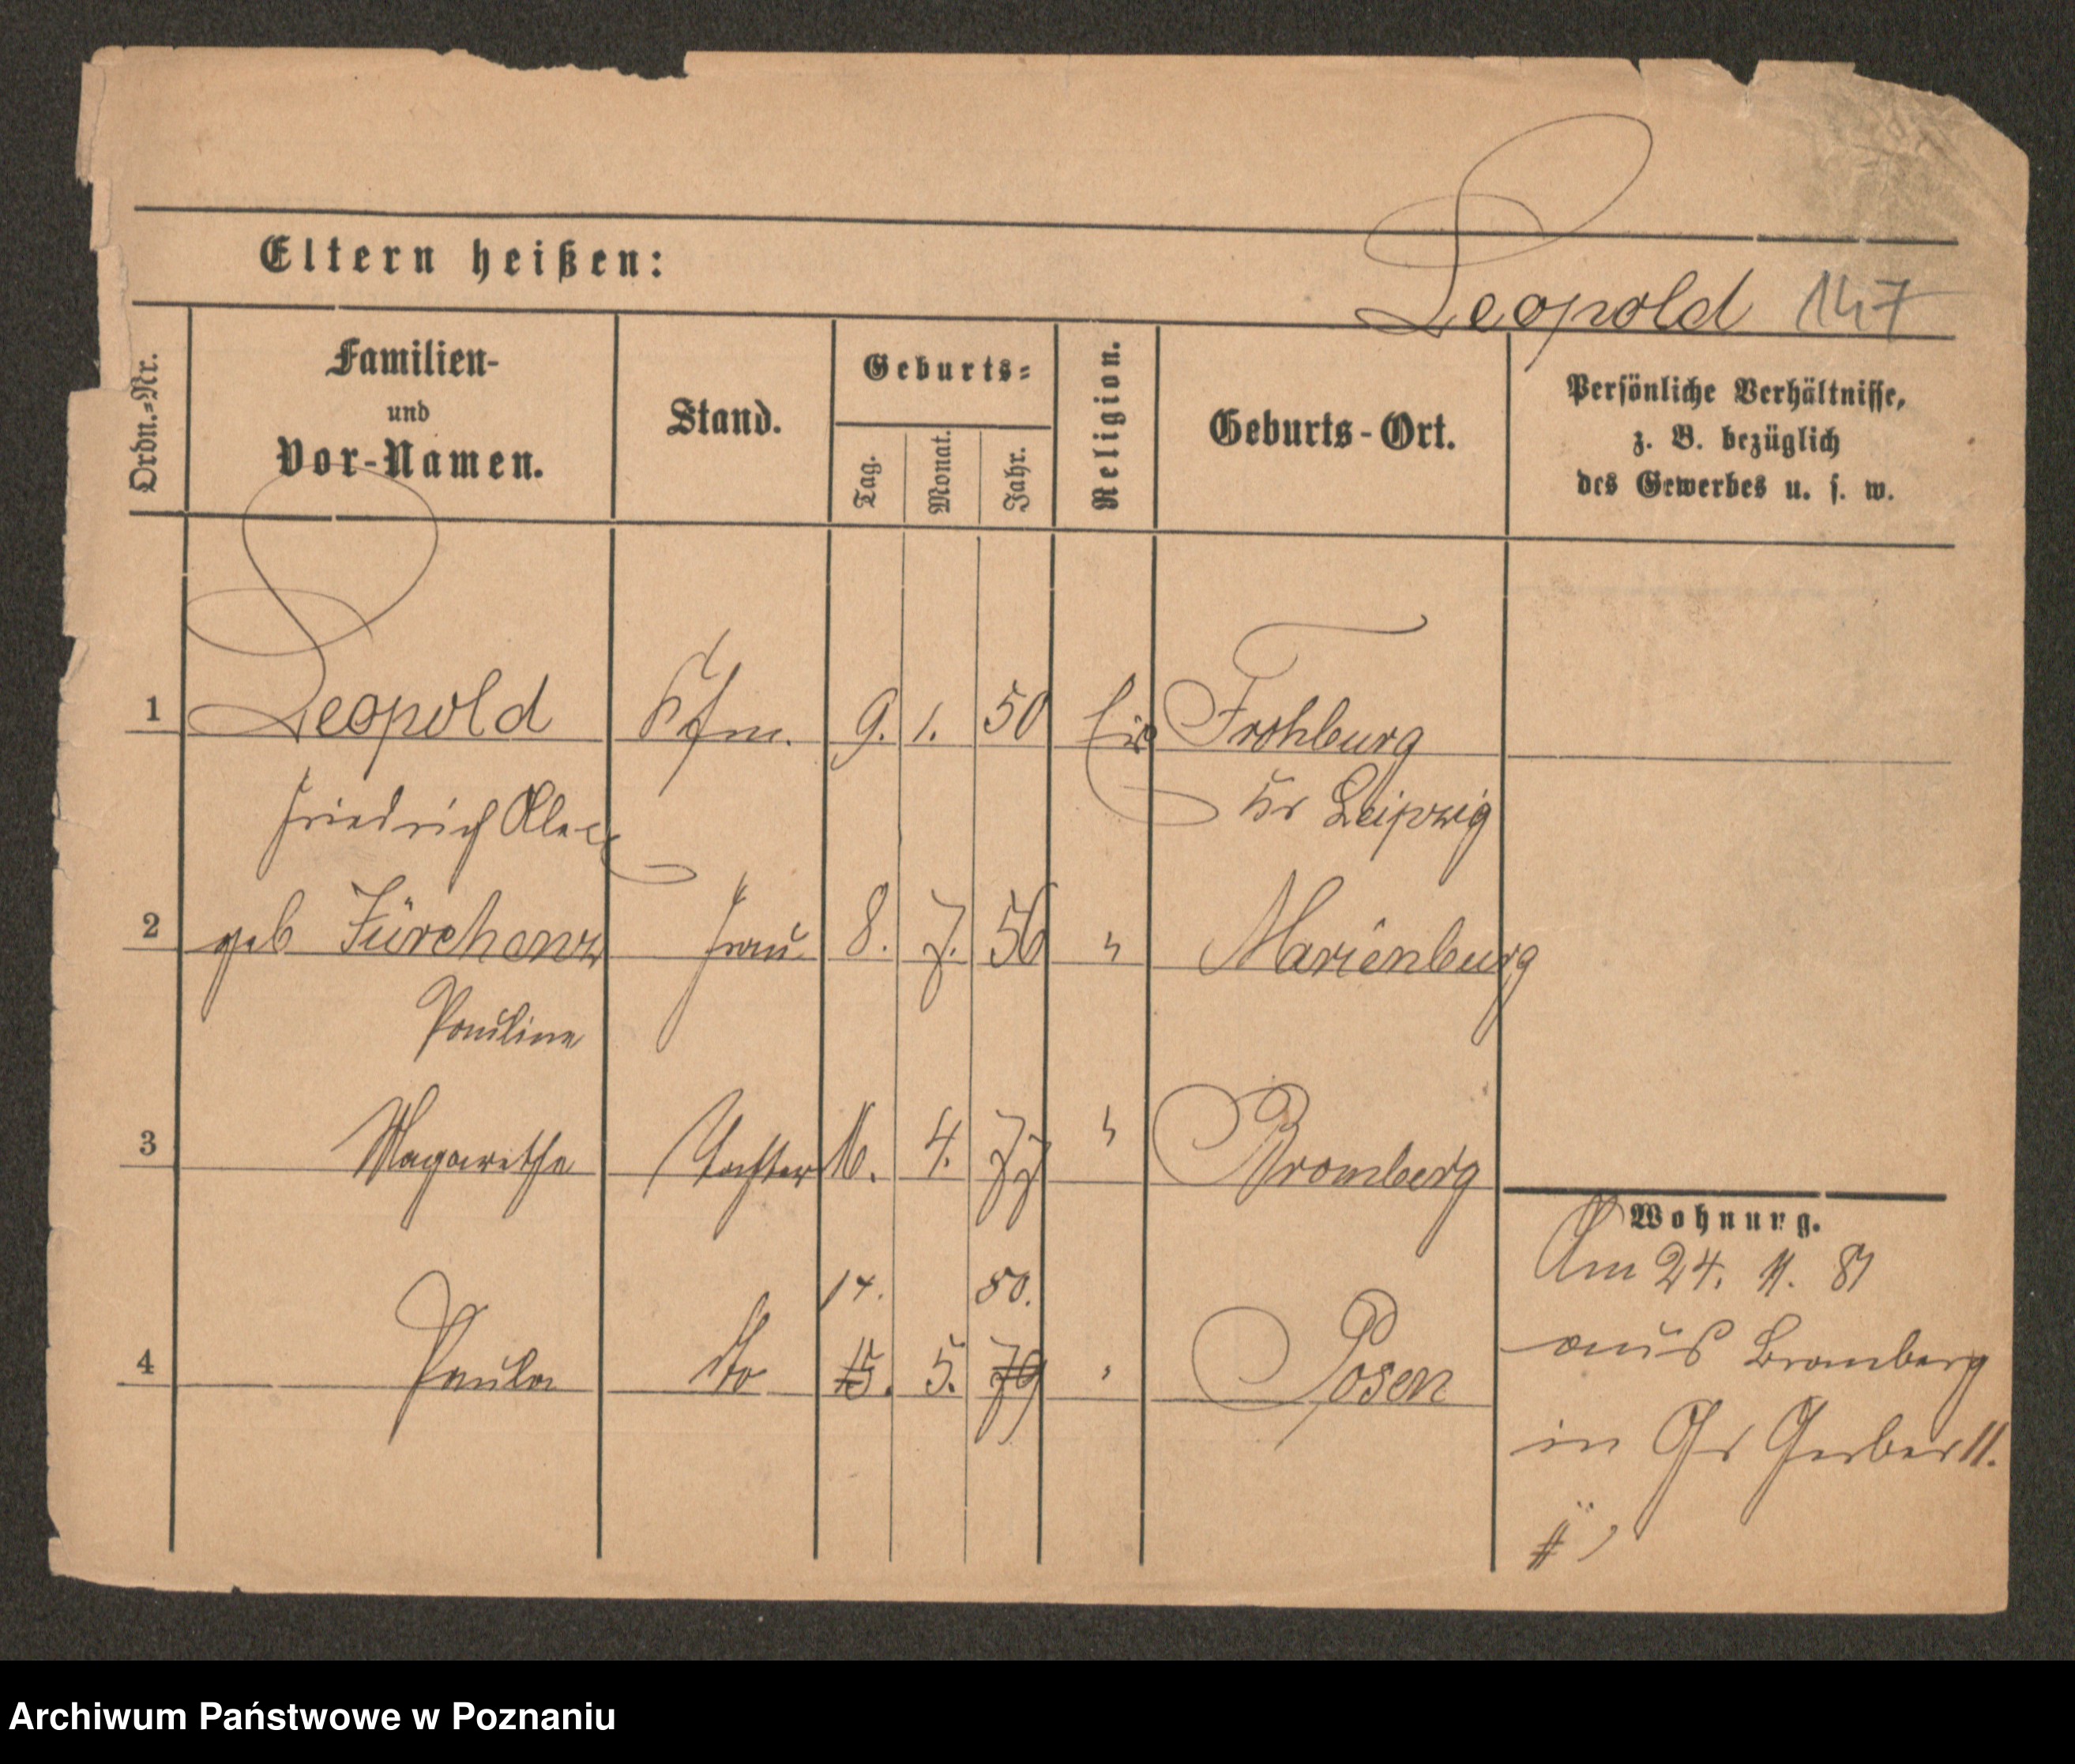 Eltern heißen:
Leopold 147
Ordn.-Nr.
Familien-
und
Vor-Namen.
Stand.
Geburts-
Tag.
Monat.
Jahr.
Religion.
Geburts-Ort.
Persönliche Verhältnisse,
z. B. bezüglich
des Gewerbes u. s. w.
1 Leopold Kfm. 9. 1. 50 Frohburg
Friedrich Kr Leipzig
2 geb Frau 8. 7. 56 " Marienburg
Pauline
3 Magarethe Tochter 16. 4. 77 " Bromberg
Wohnung.
14. 80.
4 Paula do 15. 5. 79 " Posen
Am 24. 11. 81
aus Bromberg
in Gr Gerber 11.